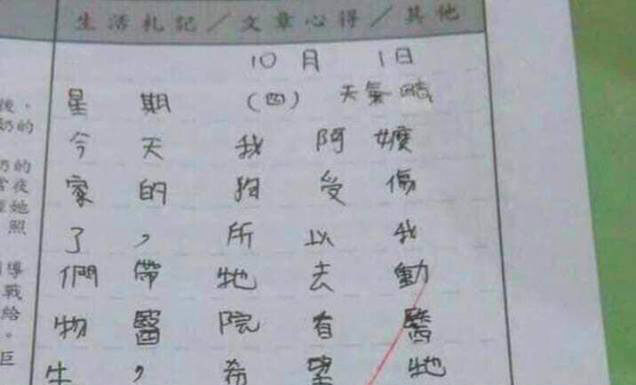 生活札記／文章心得／其他
10月 1日
星期 (四) 天氣晴
今天我阿嬤
家的狗受傷
了，所以我
們帶牠去動
物醫院看醫
生，希望牠
後。
奶的
奶的
常夜
她
照
導
戰
給
。
巨